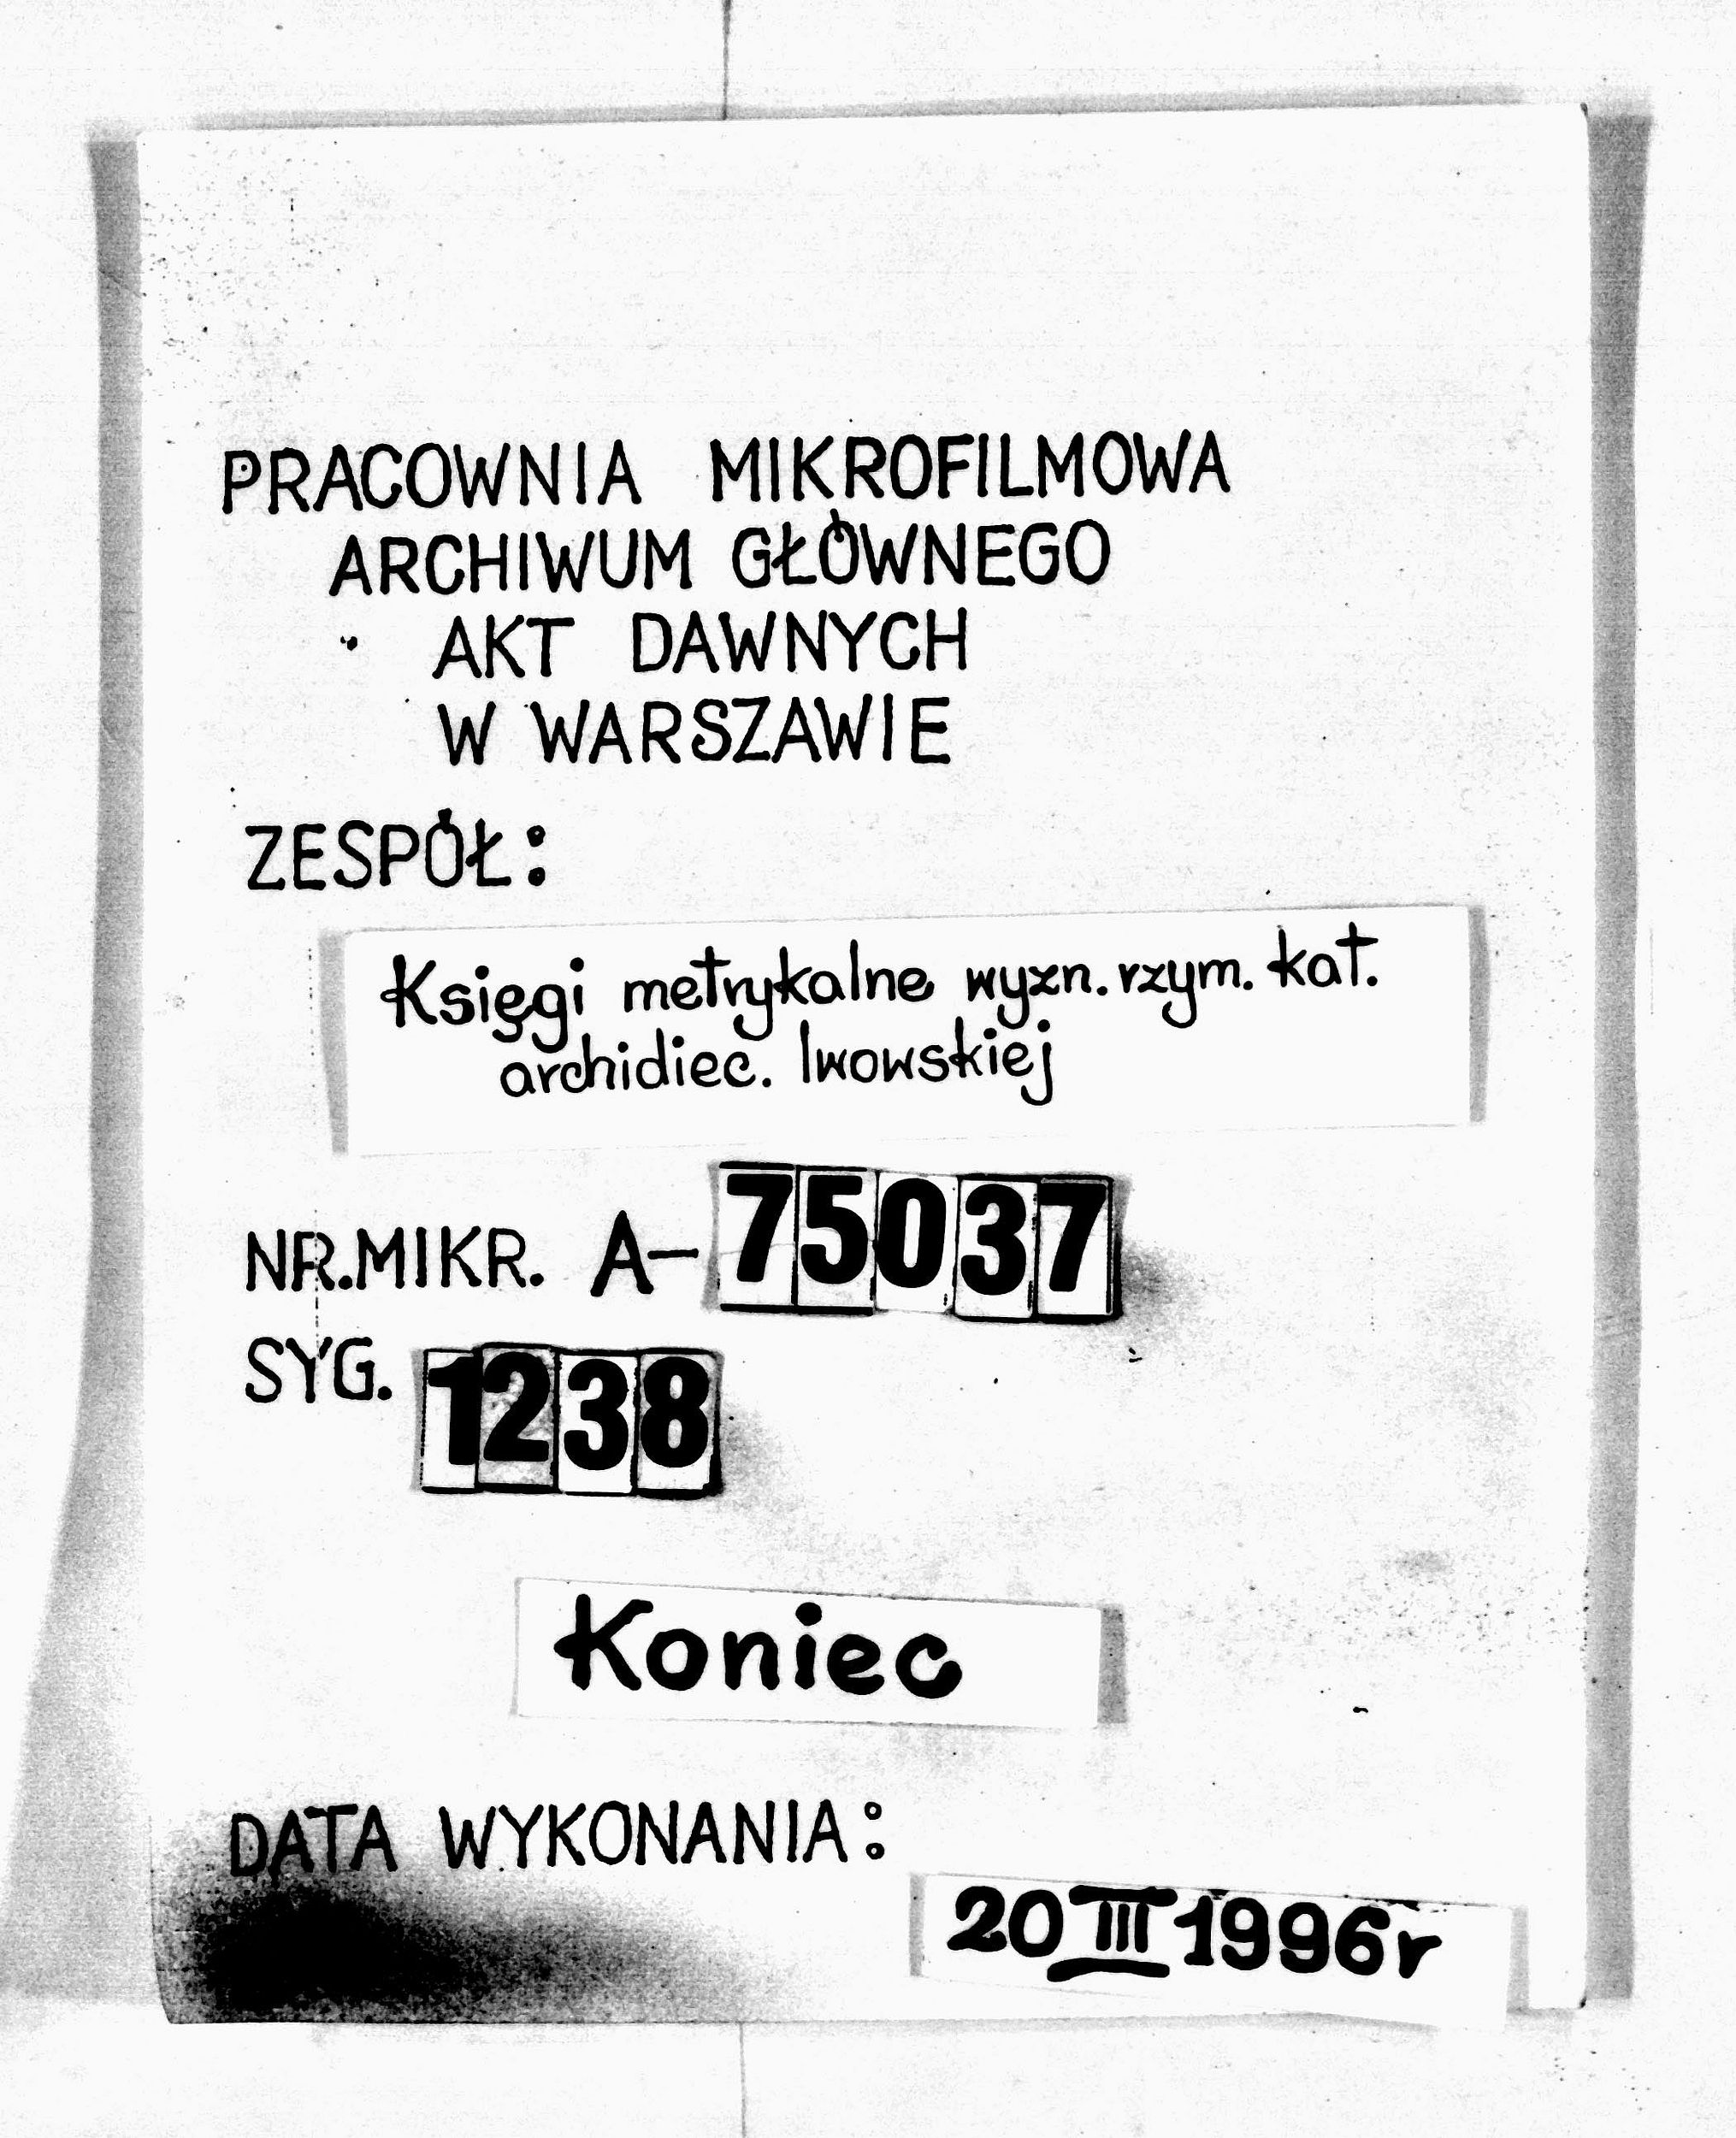 PRACOWNIA MIKROFILMOWA
ARCHIWUM GŁÓWNEGO
AKT DAWNYCH
W WARSZAWIE
ZESPÓŁ:
Księgi metrykalne wyzn. rzym. kat.
archidiec. lwowskiej
NR.MIKR. A-75037
SYG. 1238
Koniec
DATA WYKONANIA:
20 III 1996r